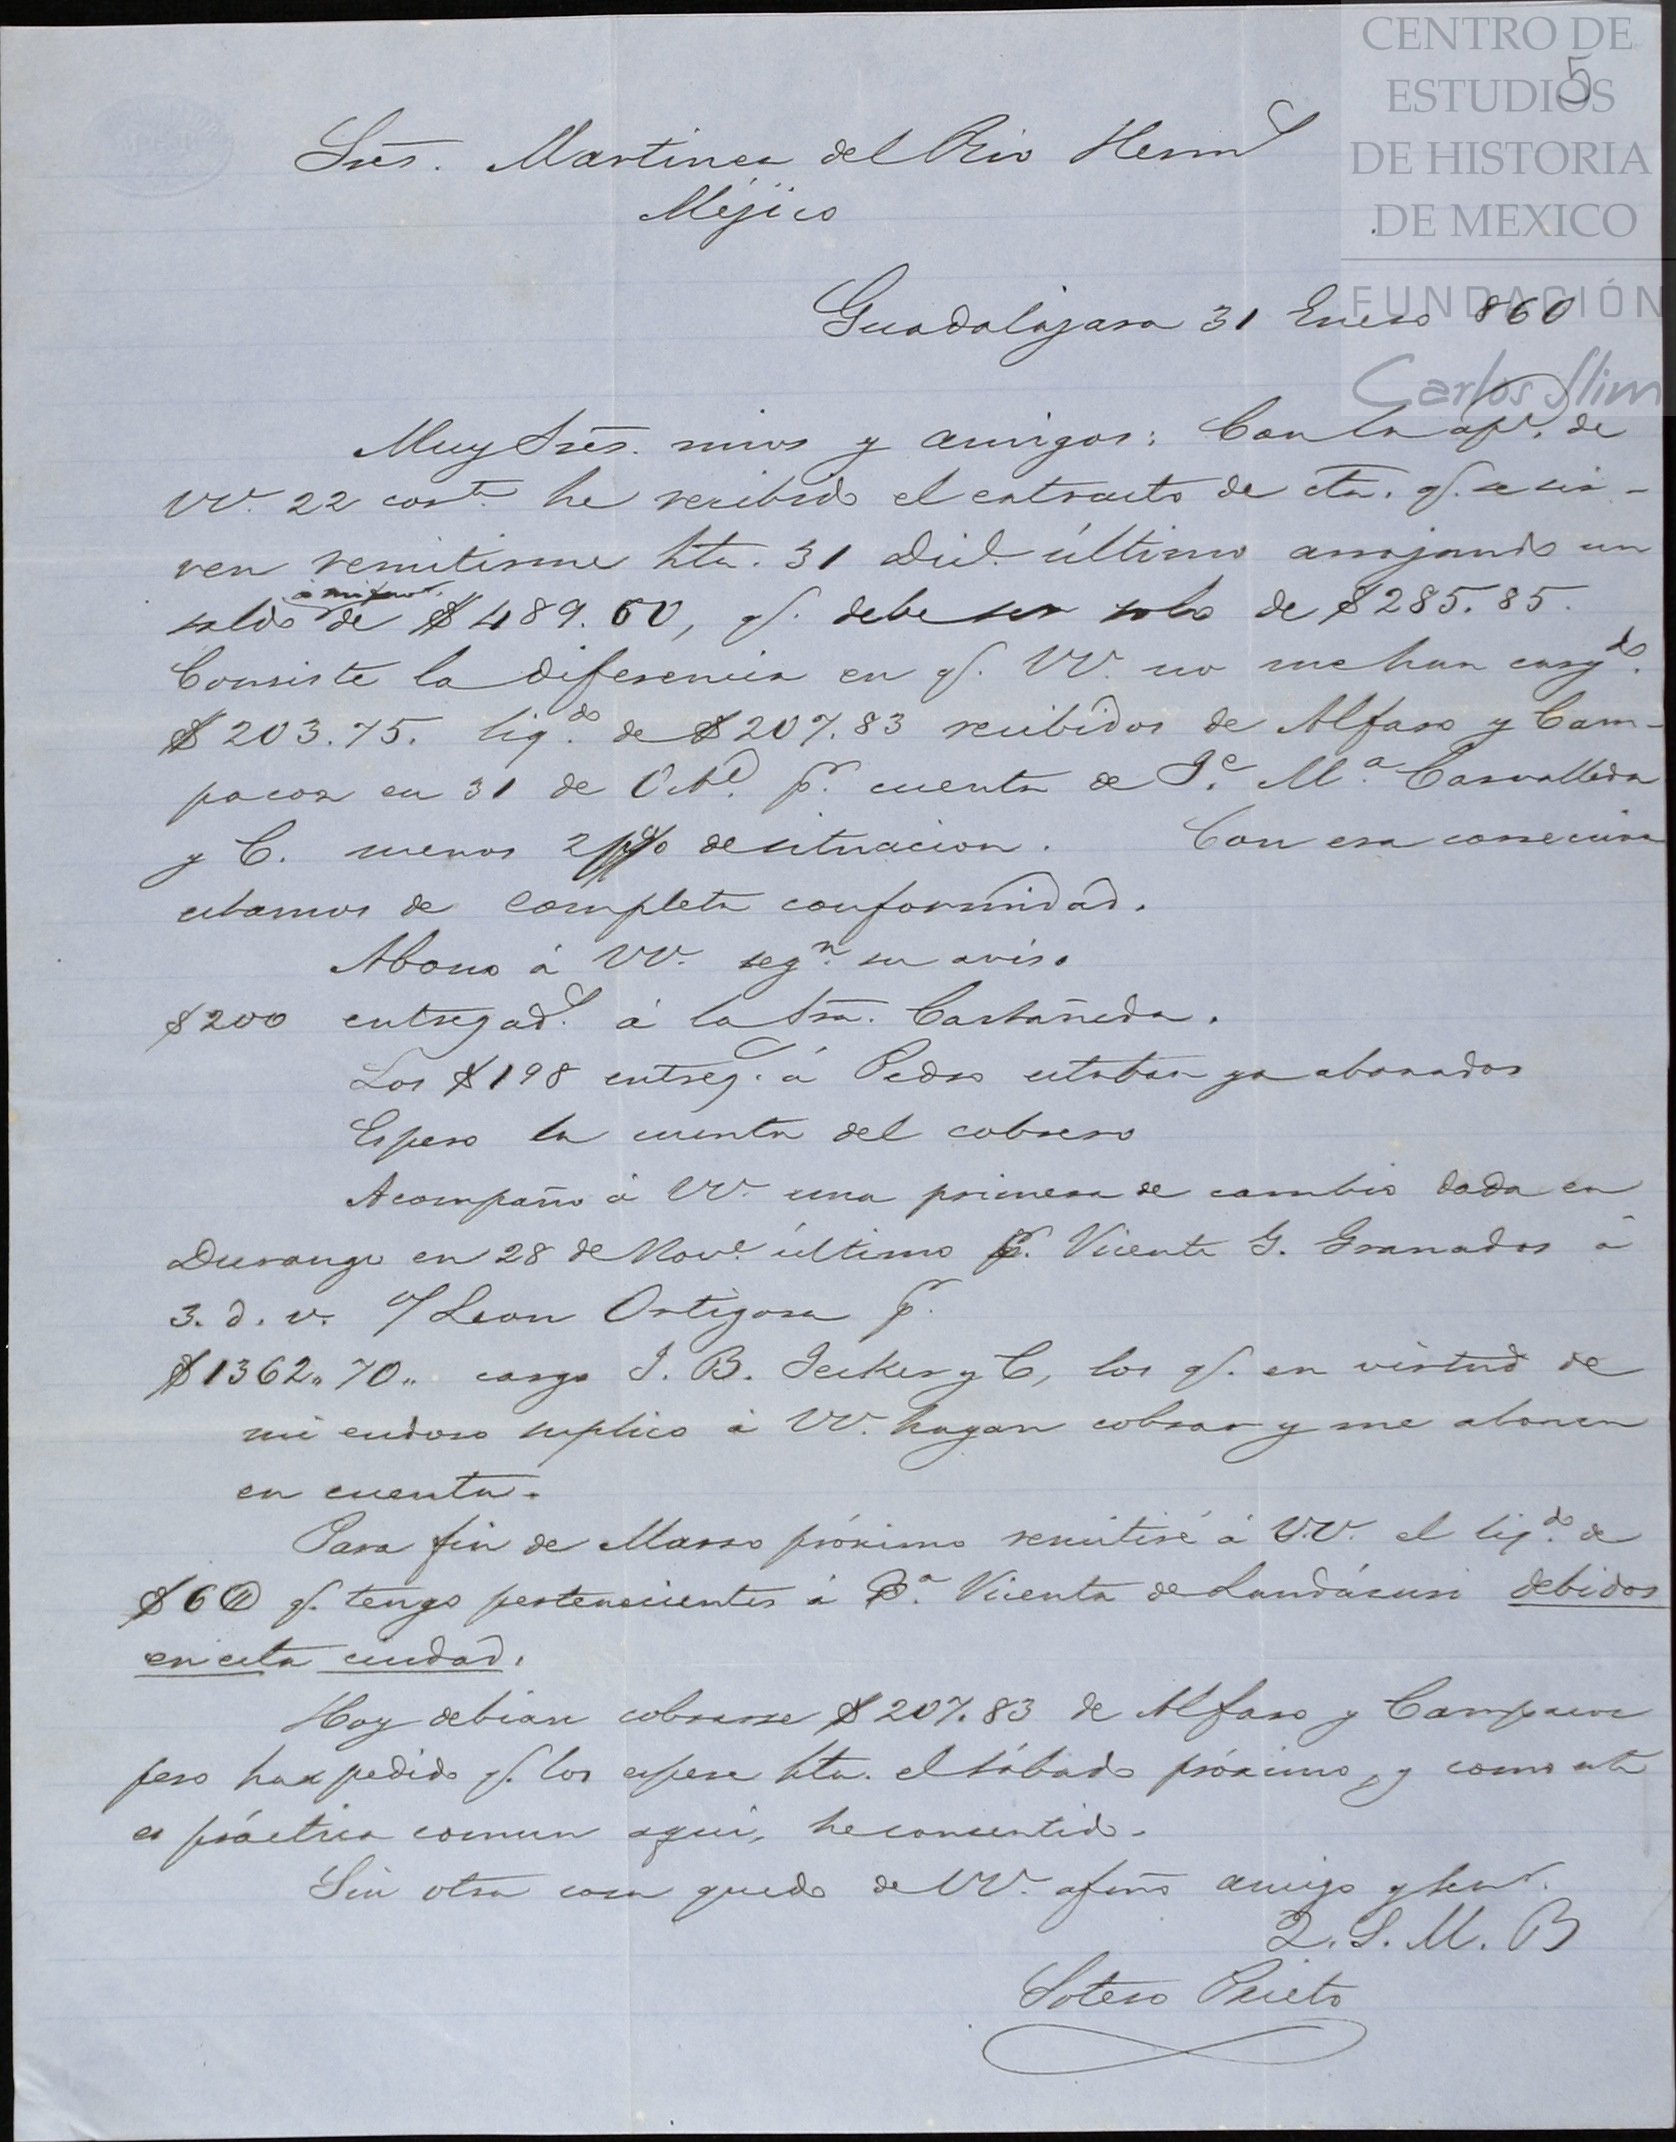 CENTRO DE
ESTUDIOS
DE HISTORIA
DE MEXICO
FUNDACIÓN
Carlos Slim
5
Sres. Martinez del Rio Herms
Méjico
Guadalajara 31 Enero 860
Muy Sres. mios y amigos: Con la apr. de
VV. 22 corte. he recibido el extracto de cta. q. se sir-
ven remitirme hta. 31 Dic. último arrojando un
saldo á mi favr. de $489.60, q. debe ser solo de $285.85.
Consiste la diferencia en q. VV. no me han cargdo.
$203.75. liqdo. de $207.83 recibidos de Alfaro y Cam-
pacos en 31 de Oct. pr. cuenta de Je. Ma. Carvalleda
y C. menos 2 p% de situacion. Con esa correccion
estamos de completa conformidad.
Abono á VV. segn. su aviso
$200 entregads. á la Sra. Castañeda.
Los $198 entregs. á Pedro estaban ya abonados
Espero la cuenta del cobrero
Acompaño á VV. una primera de cambio dada en
Durango en 28 de Nove. último pr. Vicente G. Granados á
3. d. v. o/ Leon Ortigosa pr.
$1362.70.. cargo J. B. Jecker y C, los q. en virtud de
mi endoso suplico á VV. hagan cobrar y me abonen
en cuenta.
Para fin de Marzo próximo remitiré á VV. el liqdo. de
q. tengo pertenecientes á Da. Vicenta de Landázuri debidos
en esta ciudad.
Hoy debian cobrarse $207.83 de Alfaro y Campacos
pero han pedido q. los espere hta. el sábado próximo, y como esta
es práctica comun aqui, he consentido.
Sin otra cosa quedo de VV. afmo amigo y servr.
Q. S. M. B
Sotero Prieto